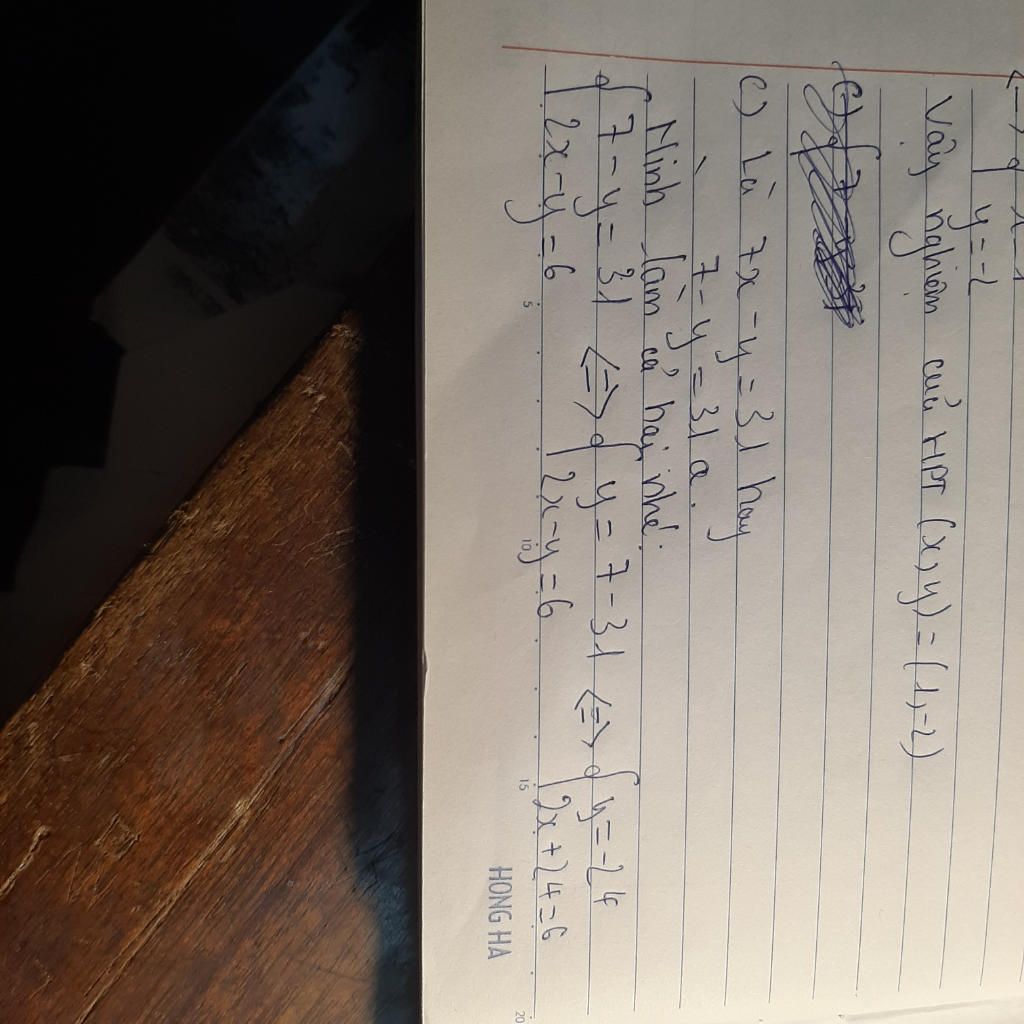 y = -2
Vậy nghiệm của HPT (x, y) = (1, -2)
c) Là 7x - y = 31 hay
7 - y = 31 ạ.
Mình làm cả hai nhé.
{ 7 - y = 31 <=> { y = 7 - 31 <=> { y = -24
2x - y = 6 2x - y = 6 2x + 24 = 6
5 10 15 20
HONG HA